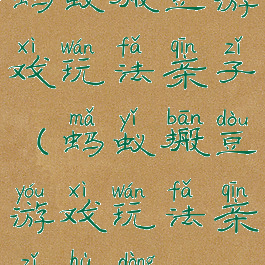 蚂蚁搬豆游
xì wán fǎ qīn zǐ
戏玩法亲子
mǎ yǐ bān dòu
（蚂蚁搬豆
yóu xì wán fǎ qīn
游戏玩法亲
zǐ hù dòng